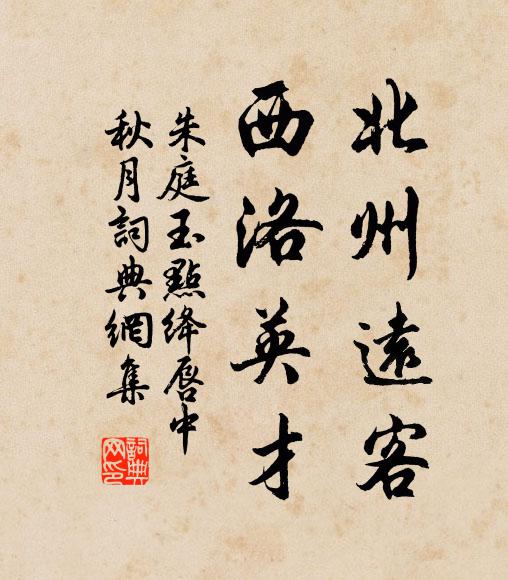 北州遠客
西洛英才
朱庭玉點絳唇中
秋月詞典網集
詞典网印